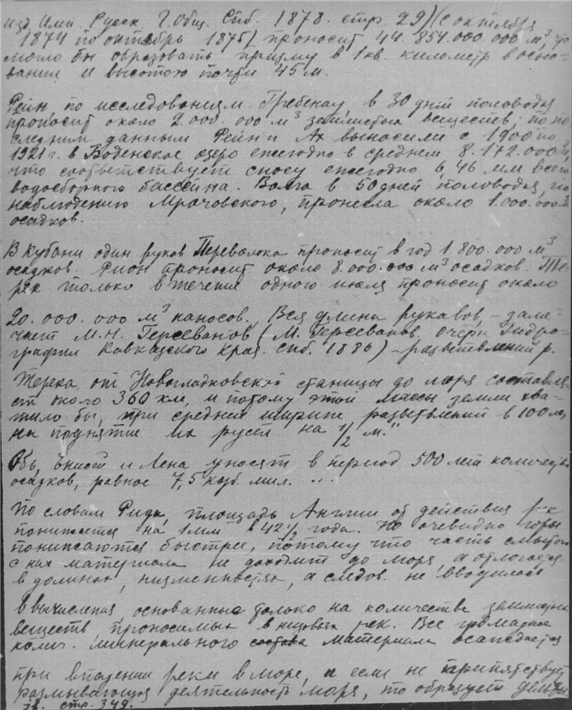 из Имп. Русск. Г. Общ. Спб. 1878. стр. 29) (с октября
1874 по октябрь 1875) проносит 44.854.000.000 м³, что
могло бы образовать призму в 1 кв. километр в осно-
вании и высотою почти 45 м.
Рейн по исследованиям Гребенау, в 30 дней половодья
проносит около 2.000.000 м³ землистых веществ; по по-
следним данным Рейн и Ах выносили с 1900 по
1921 г. в Боденское озеро ежегодно в среднем 8.172.000
что соответствует сносу ежегодно 6,46 мм всего
водосборного бассейна. Волга в 50 дней половодья, по
наблюдению Мрачовского, пронесла около 1.000.000 м³
осадков.
В Кубани один рукав Переволока проносит в год 1.800.000 м³
осадков. Рион проносит около 8.000.000 м³ осадков. Те-
рек только в течение одного июля проносит около
20.000.000 м³ наносов. „Вся длина рукавов – заме-
чает М.Н. Герсеванов (М. Герсеванов. Очерк Гидро-
графии Кавказского края. Спб. 1886) – разветвлений р.
Терека от Новогладковской станицы до моря составля-
ет около 360 км, и потому этой массы земли хва-
тило бы, при средней ширине разветвлений в 100 м,
на поднятие их русел на 1/2 м."
Обь, Енисей и Лена уносят в период 500 лет количество
осадков, равное 7,5 куб. мил. ...
По словам Рида, площадь Англии от действия р-к
понижается на 1 мм в 42 1/2 года. Но очевидно горы
понижаются быстрее, потому что часть смытого
с них материала не доходит до моря, а отлагается
в долинах, низменностях, а следов. не вводился
в вычисления основанные только на количестве землистых
веществ проносимых в низовьях рек. Все громадное
колич. минерального состава материала осаждается
при впадении реки в море, и если не препятствует
размывающая деятельность моря, то образует дельты
стр. 349.